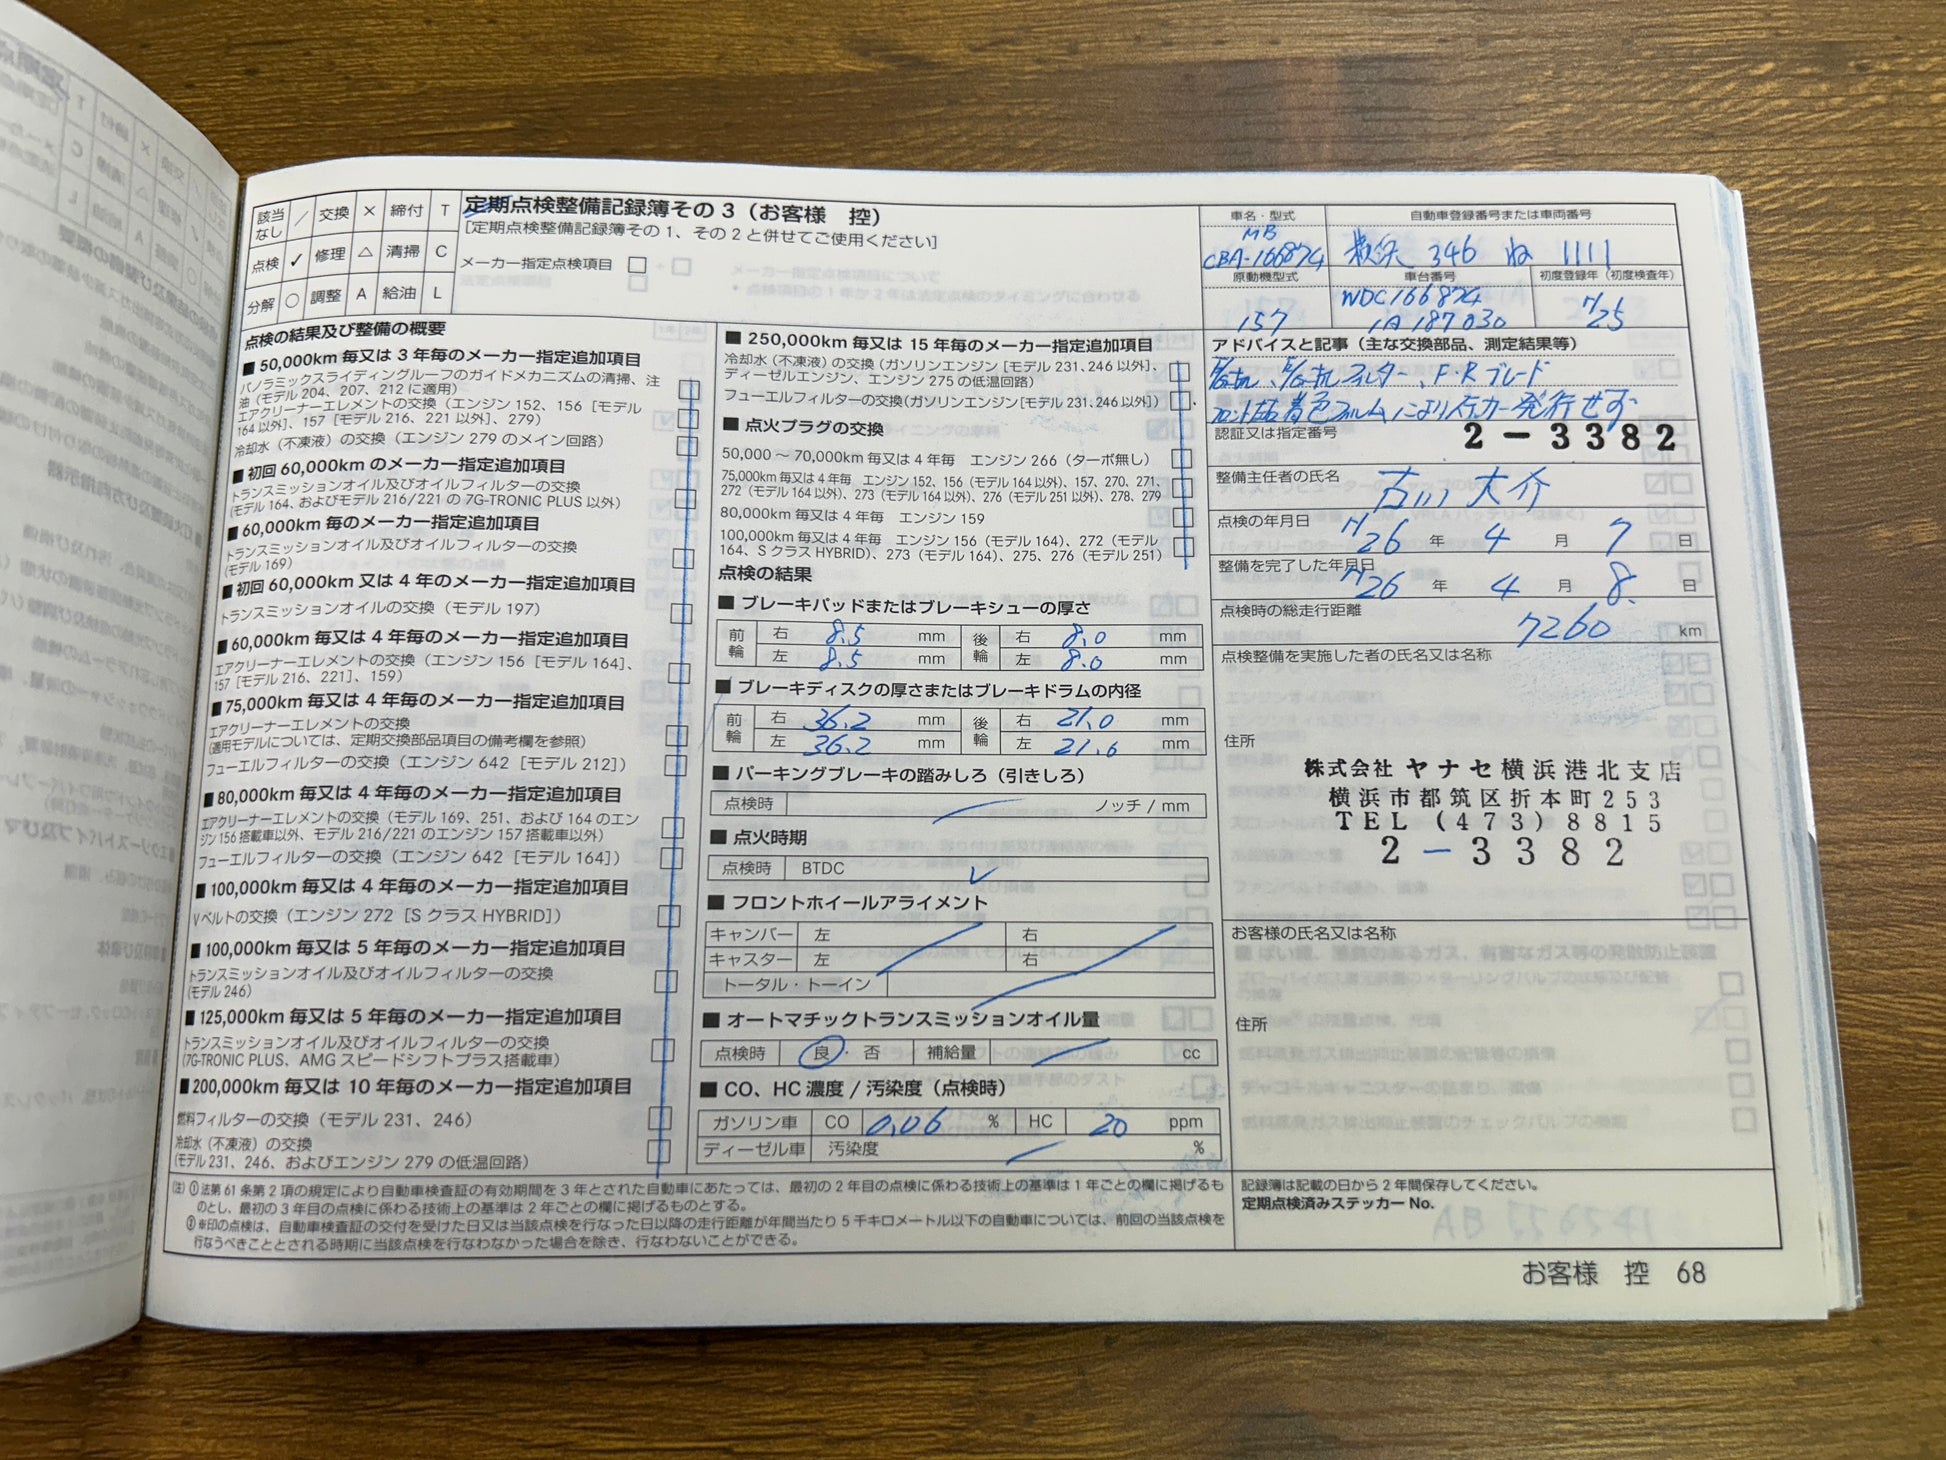 該当なし ／ 交換 × 締付 T
点検 ✓ 修理 △ 清掃 C
分解 ○ 調整 A 給油 L
定期点検整備記録簿その3（お客様　控）
［定期点検整備記録簿その1、その2と併せてご使用ください］
メーカー指定点検項目 □
点検の結果及び整備の概要
■ 50,000km 毎又は 3 年毎のメーカー指定追加項目
パノラミックスライディングルーフのガイドメカニズムの清掃、注
油（モデル 204、207、212 に適用）
エアクリーナーエレメントの交換（エンジン 152、156［モデル
164 以外］、157［モデル 216、221 以外］、279）
冷却水（不凍液）の交換（エンジン 279 のメイン回路）
■ 初回 60,000km のメーカー指定追加項目
トランスミッションオイル及びオイルフィルターの交換
（モデル 164、およびモデル 216/221 の 7G-TRONIC PLUS 以外）
■ 60,000km 毎のメーカー指定追加項目
トランスミッションオイル及びオイルフィルターの交換
（モデル 169）
■ 初回 60,000km 又は 4 年毎のメーカー指定追加項目
トランスミッションオイルの交換（モデル 197）
■ 60,000km 毎又は 4 年毎のメーカー指定追加項目
エアクリーナーエレメントの交換（エンジン 156［モデル 164］、
157［モデル 216、221］、159）
■ 75,000km 毎又は 4 年毎のメーカー指定追加項目
エアクリーナーエレメントの交換
（適用モデルについては、定期交換部品項目の備考欄を参照）
フューエルフィルターの交換（エンジン 642［モデル 212］）
■ 80,000km 毎又は 4 年毎のメーカー指定追加項目
エアクリーナーエレメントの交換（モデル 169、251、および 164 のエン
ジン 156 搭載車以外、モデル 216/221 のエンジン 157 搭載車以外）
フューエルフィルターの交換（エンジン 642［モデル 164］）
■ 100,000km 毎又は 4 年毎のメーカー指定追加項目
V ベルトの交換（エンジン 272［S クラス HYBRID］）
■ 100,000km 毎又は 5 年毎のメーカー指定追加項目
トランスミッションオイル及びオイルフィルターの交換
（モデル 246）
■ 125,000km 毎又は 5 年毎のメーカー指定追加項目
トランスミッションオイル及びオイルフィルターの交換
（7G-TRONIC PLUS、AMG スピードシフトプラス搭載車）
■ 200,000km 毎又は 10 年毎のメーカー指定追加項目
燃料フィルターの交換（モデル 231、246）
冷却水（不凍液）の交換
（モデル 231、246、およびエンジン 279 の低温回路）
■ 250,000km 毎又は 15 年毎のメーカー指定追加項目
冷却水（不凍液）の交換（ガソリンエンジン［モデル 231、246 以外］、
ディーゼルエンジン、エンジン 275 の低温回路）
フューエルフィルターの交換（ガソリンエンジン［モデル 231、246 以外］）
■ 点火プラグの交換
50,000 ～ 70,000km 毎又は 4 年毎　エンジン 266（ターボ無し）
75,000km 毎又は 4 年毎　エンジン 152、156（モデル 164 以外）、157、270、271、
272（モデル 164 以外）、273（モデル 164 以外）、276（モデル 251 以外）、278、279
80,000km 毎又は 4 年毎　エンジン 159
100,000km 毎又は 4 年毎　エンジン 156（モデル 164）、272（モデル
164、S クラス HYBRID）、273（モデル 164）、275、276（モデル 251）
点検の結果
■ ブレーキパッドまたはブレーキシューの厚さ
前輪 右 8.5 mm 後輪 右 8.0 mm
左 8.5 mm 左 8.0 mm
■ ブレーキディスクの厚さまたはブレーキドラムの内径
前輪 右 36.2 mm 後輪 右 21.0 mm
左 36.2 mm 左 21.6 mm
■ パーキングブレーキの踏みしろ（引きしろ）
点検時 ノッチ / mm
■ 点火時期
点検時 BTDC ✓
■ フロントホイールアライメント
キャンバー 左 右
キャスター 左 右
トータル・トーイン
■ オートマチックトランスミッションオイル量
点検時 良・否 補給量 cc
■ CO、HC 濃度 / 汚染度（点検時）
ガソリン車 CO 0.06 % HC 20 ppm
ディーゼル車 汚染度 %
車名・型式 自動車登録番号または車両番号
MB
CBA-166874 横浜 346 ね 1111
原動機型式 車台番号 初度登録年（初度検査年）
157 WDC166874
1A187030 H25
アドバイスと記事（主な交換部品、測定結果等）
E/Gオイル、E/Gオイルフィルター、F・Rブレード
フロント左右着色フィルムによりステッカー発行せず
認証又は指定番号 2-3382
整備主任者の氏名 古川 大介
点検の年月日 H26 年 4 月 7 日
整備を完了した年月日 H26 年 4 月 8 日
点検時の総走行距離 7260 km
点検整備を実施した者の氏名又は名称
住所
株式会社 ヤナセ横浜港北支店
横浜市都筑区折本町253
TEL (473) 8815
2-3382
お客様の氏名又は名称
住所
（注）① 法第 61 条第 2 項の規定により自動車検査証の有効期間を 3 年とされた自動車にあたっては、最初の 2 年目の点検に係わる技術上の基準は 1 年ごとの欄に掲げるも
のとし、最初の 3 年目の点検に係わる技術上の基準は 2 年ごとの欄に掲げるものとする。
② ※印の点検は、自動車検査証の交付を受けた日又は当該点検を行なった日以降の走行距離が年間当たり 5 千キロメートル以下の自動車については、前回の当該点検を
行なうべきこととされる時期に当該点検を行なわなかった場合を除き、行なわないことができる。
記録簿は記載の日から 2 年間保存してください。
定期点検済みステッカー No.
お客様　控　68